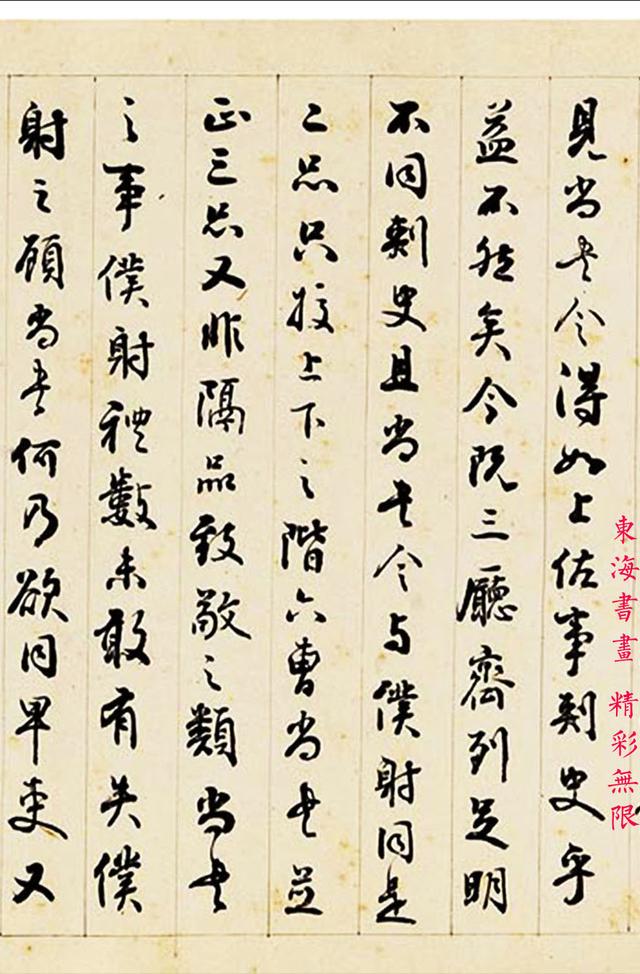 見尚書令得如上佐事刺史乎
益不然矣今既三廳齊列足明
不同刺史且尚書令与僕射同是
二品只校上下之階六曹尚書並
正三品又非隔品致敬之類尚書
之事僕射禮數未敢有失僕
射之顧尚書何乃欲同卑吏又
東海書畫 精彩無限